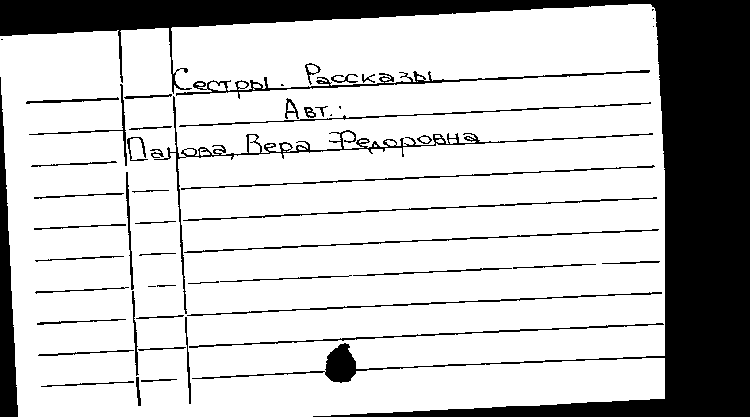 Сестры. Рассказы
Авт.:
Панова, Вера Федоровна